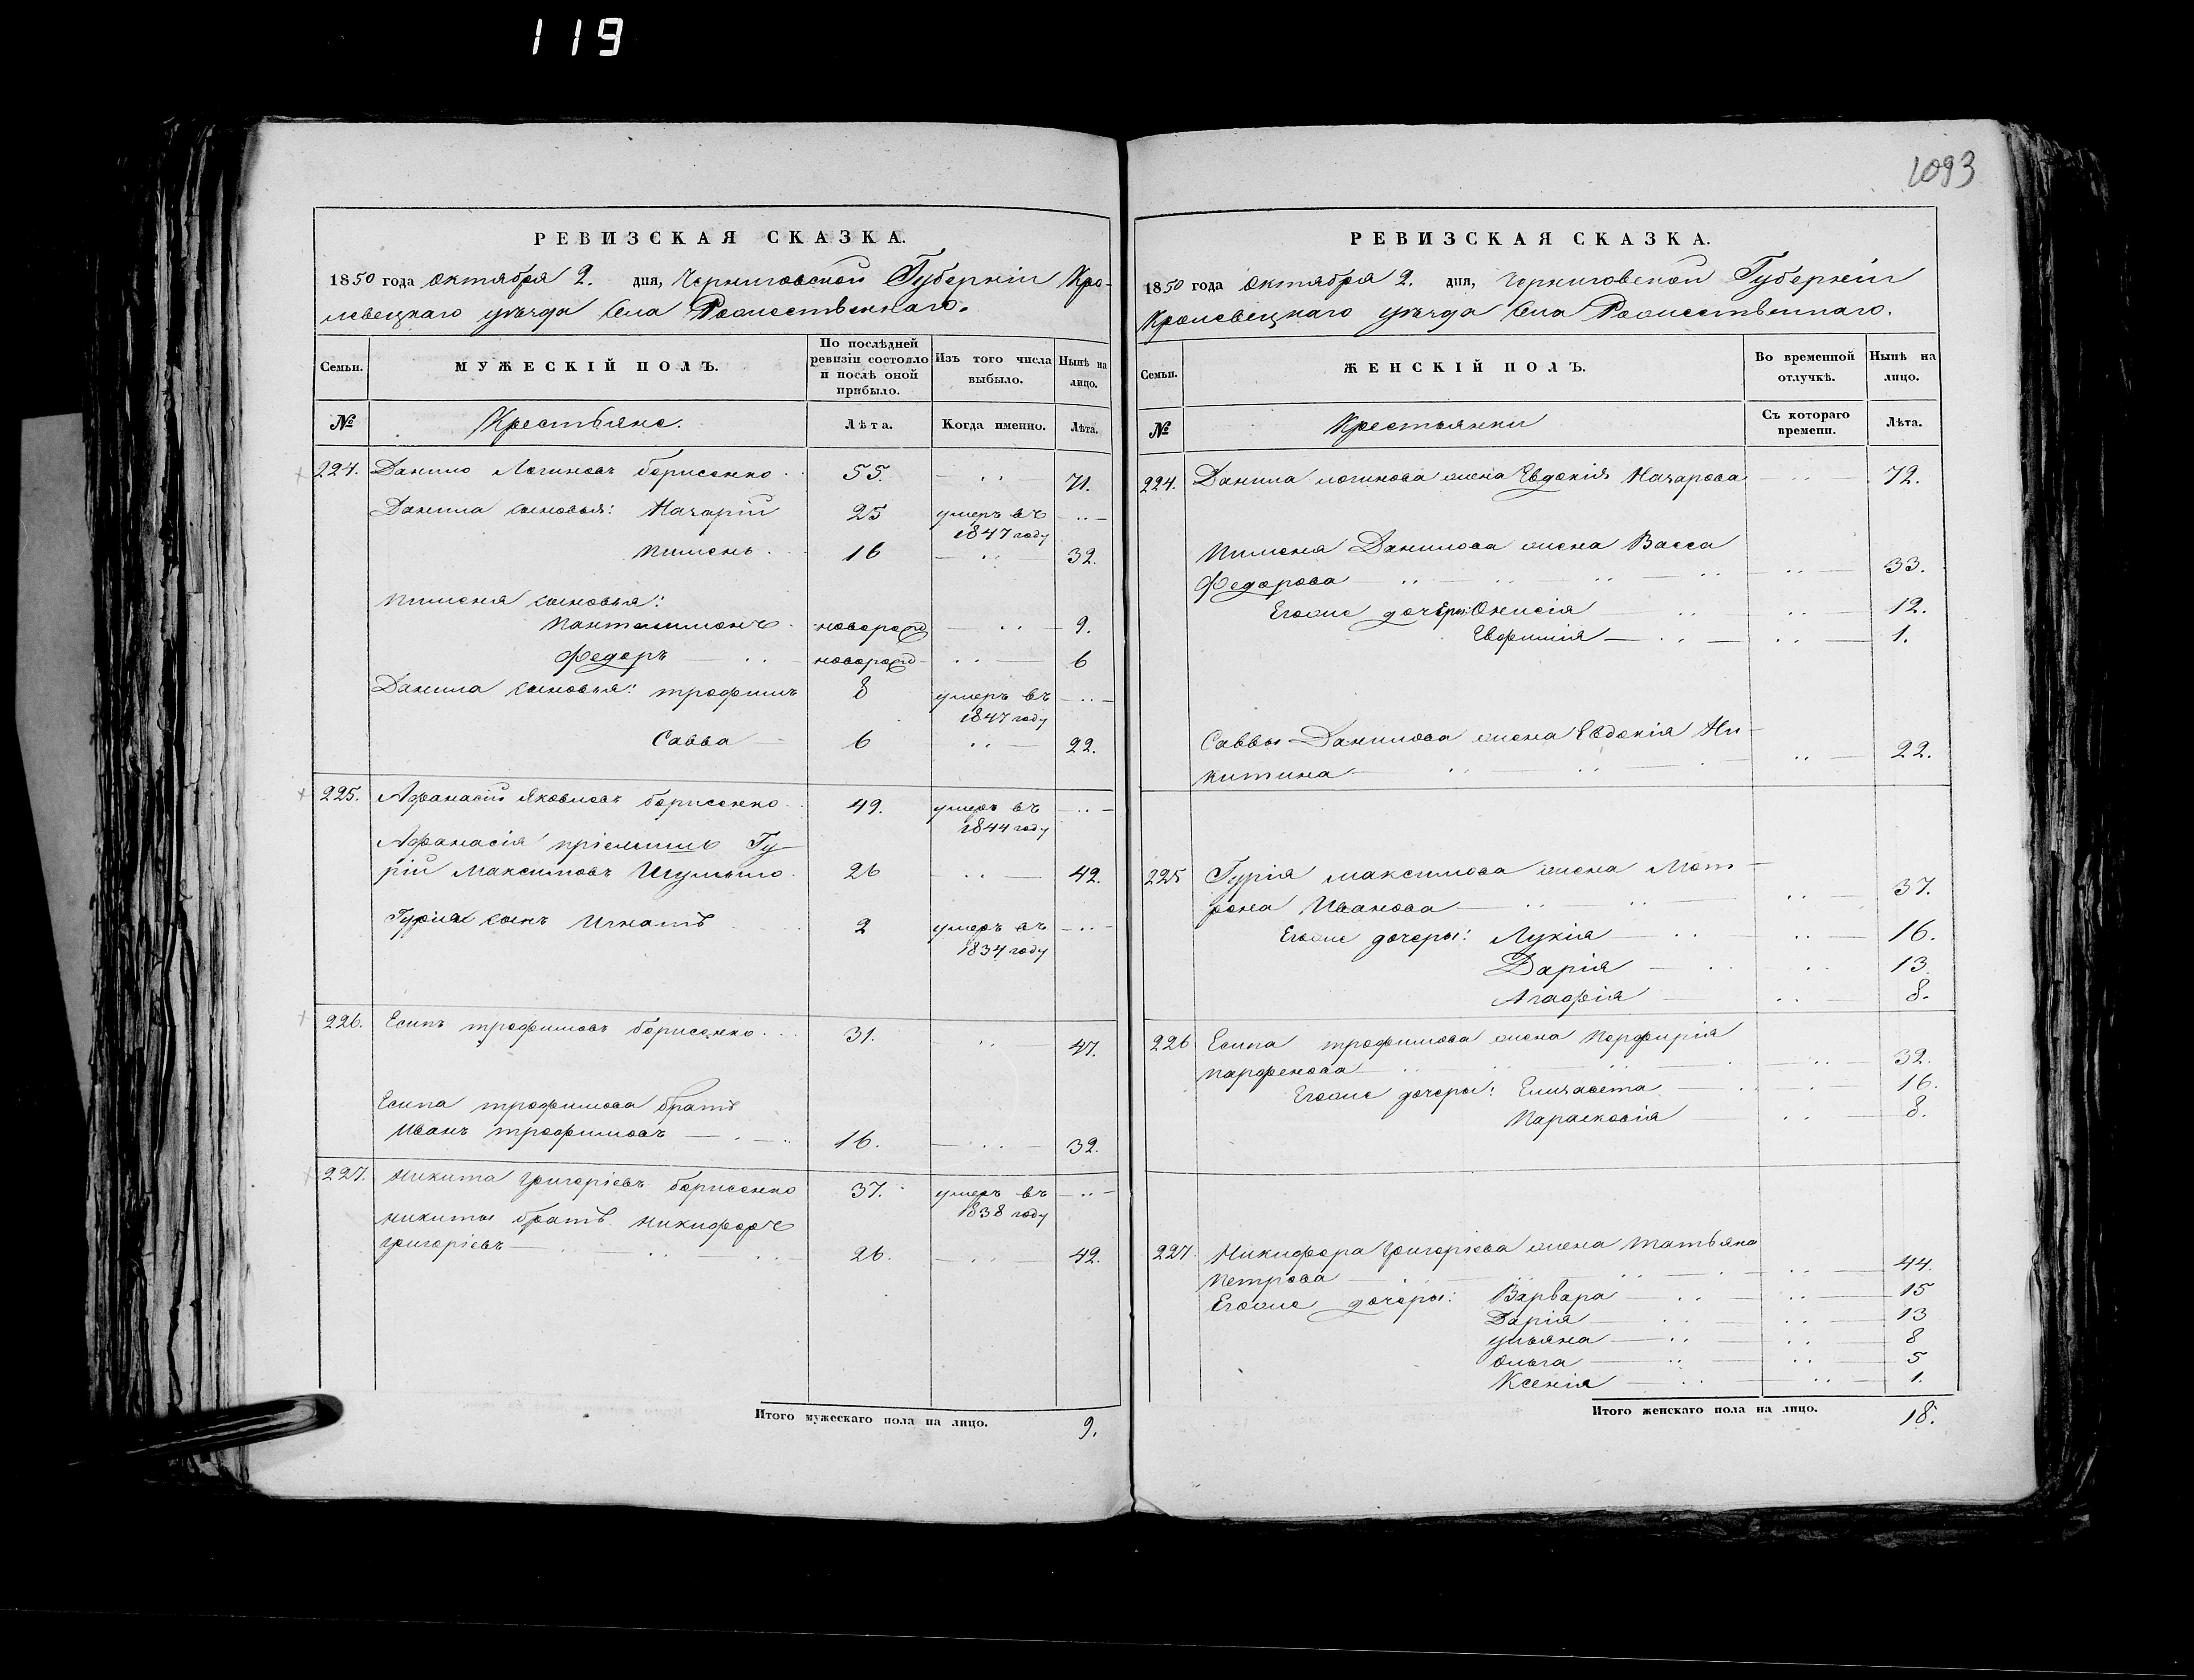 119
1093
РЕВИЗСКАЯ СКАЗКА.
1850 года Октября 2. дня, Черниговской Губерніи Кро-
левецкаго уѣзда Села Рождественнаго.
Семьи. МУЖЕСКІЙ ПОЛЪ. По послѣдней ревизіи состояло и послѣ оной прибыло. Изъ того числа выбыло. Нынѣ на лицо.
№ Крестьяне. Лѣта. Когда именно. Лѣта.
224. Данило Логиновъ Борисенко 55. 71.
Данила сыновья: Назарій 25 умеръ въ
1847 году
Пименъ 16 32.
Пимена сыновья:
Пантелимонъ новорожд 9.
Федоръ новорожд 6
Данила сыновья: Трофимъ 8 умеръ въ
1847 году
Савва 6 22.
225. Афанасій Яковлевъ Борисенко 49. умеръ въ
1844 году
Афанасія пріемышъ Гу-
рій Максимовъ 26 42.
Гурія сынъ Игнатъ 2 умеръ въ
1834 году
226. Есипъ Трофимовъ Борисенко 31. 47.
Есипа Трофимова братъ
Иванъ Трофимовъ 16. 32.
227. Никита Григоріевъ Борисенко 37. умеръ въ
1838 году
Никиты братъ Никифоръ
Григоріевъ 26. 42.
Итого мужескаго пола на лицо. 9.
РЕВИЗСКАЯ СКАЗКА.
1850 года Октября 2. дня, Черниговской Губерніи
Кролевецкаго уѣзда Села Рождественнаго.
Семьи. ЖЕНСКІЙ ПОЛЪ. Во временной отлучкѣ. Нынѣ на лицо.
№ Крестьянки Съ котораго времени. Лѣта.
224. Данила Логинова жена Евдокія Назарова 72.
Пимена Данилова жена Васса
Федорова 33.
Егожъ дочери: Онисія 12.
Евфимія 1.
Саввы Данилова жена Евдокія Ни-
китина 22.
225 Гурія Максимова жена Мот-
рона Иванова 37.
Егоже дочеры: Лукія 16.
Дарія 13
Агафія 8.
226 Есипа Трофимова жена Порфирія
Парфенова 32.
Егоже дочеры: Елизавета 16.
Парасковія 8.
227. Никифора Григоріева жена Татьяна
Петрова 44.
Егоже дочеры: Варвара 15
Дарія 13
Ульяна 8
Ольга 5
Ксенія 1.
Итого женскаго пола на лицо. 18.